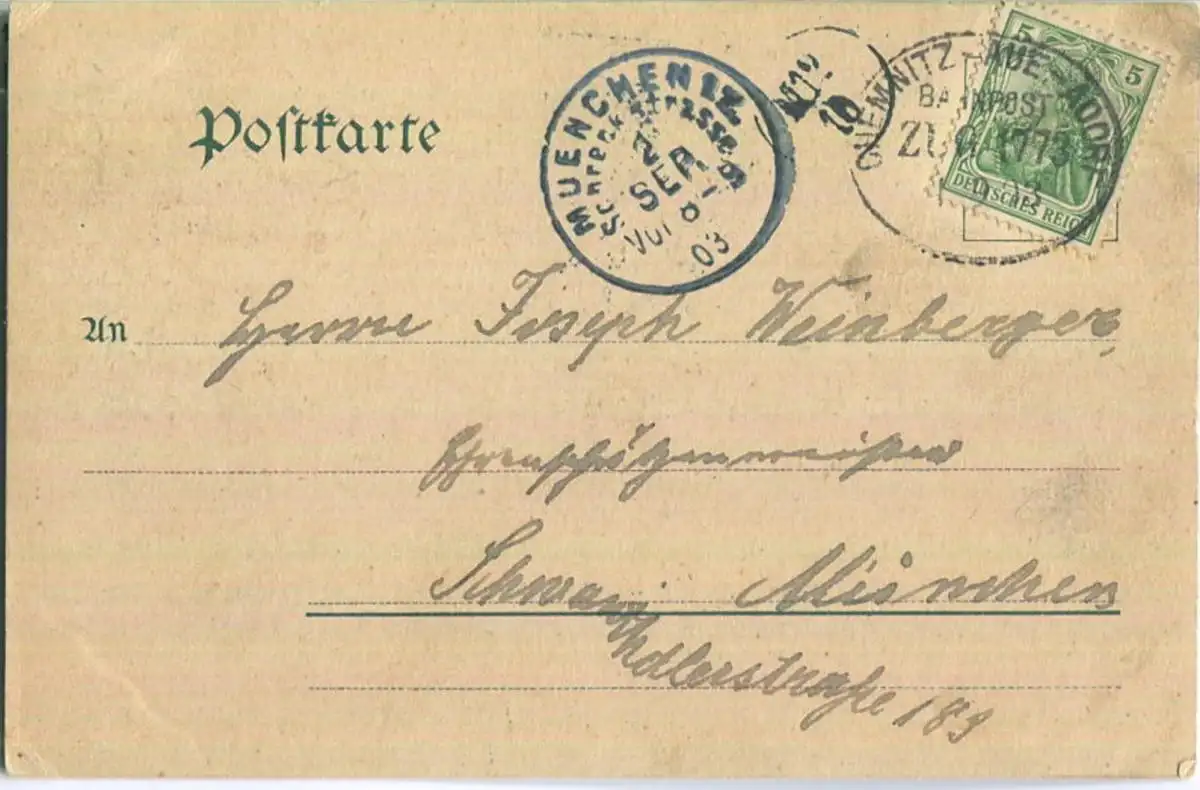 Postkarte
MUENCHEN 1Z.
Schreckstrasse 9
SEP
Vor 8
03
CHEMNITZ-AUE-ADORF
BAHNPOST
ZUG 1773
5 5
DEUTSCHES REICH
An Herrn Joseph Weinberger,
Ehrenschützenmeister
München
Adlerstraße 189